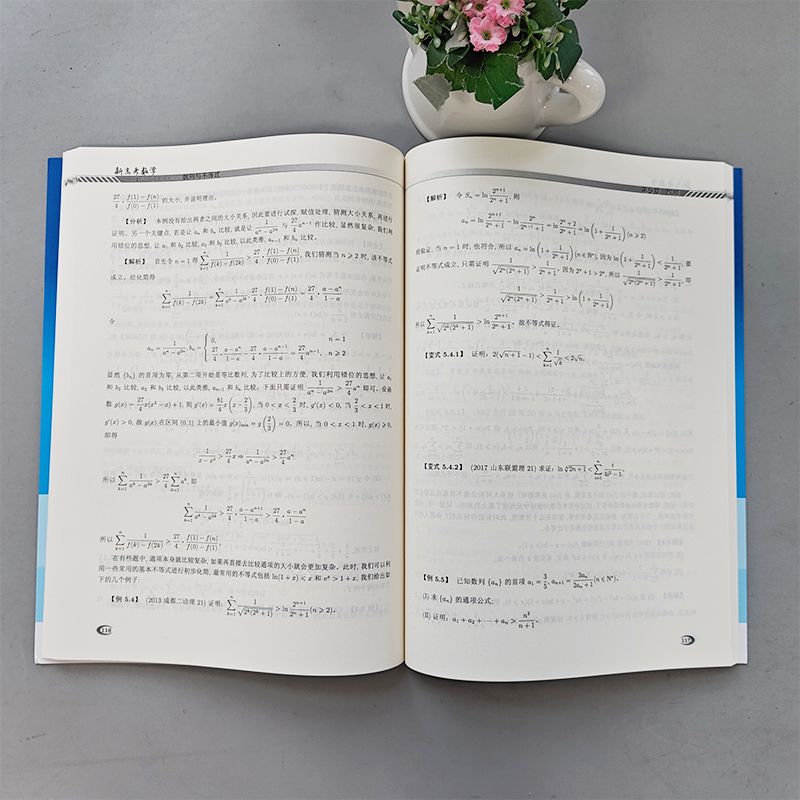 新高考数学
数列与不等式
27/4 · f(1)−f(n)/f(0)−f(1) 的大小, 并说明理由.
【分析】 本例没有给出两者之间的大小关系, 因此要进行试探, 赋值处理, 猜测大小关系, 再进行
证明. 另一个关键点, 若是让 aₙ 和 bₙ 比较, 就是让 1/(aⁿ−a²ⁿ) 与 27/4 aⁿ 作比较, 显然很复杂, 我们利
用错位的思想, 让 a₁ 和 b₂ 比较, a₂ 和 b₃ 比较, 以此类推, aₙ₋₁ 和 bₙ 比较.
【解析】 首先令 n=1 得 ∑ₖ₌₁ⁿ 1/(f(k)−f(2k)) > 27/4 · (f(1)−f(n))/(f(0)−f(1)), 我们猜测当 n⩾2 时, 该不等式
成立, 经化简得
∑ₖ₌₁ⁿ 1/(f(k)−f(2k)) = ∑ₖ₌₁ⁿ 1/(aᵏ−a²ᵏ), 27/4 · (f(1)−f(n))/(f(0)−f(1)) = 27/4 · (a−aⁿ)/(1−a)
令
aₙ = 1/(aⁿ−a²ⁿ), bₙ = { 0, n=1
27/4 · (a−aⁿ)/(1−a) − 27/4 · (a−aⁿ⁻¹)/(1−a) = 27/4 aⁿ⁻¹, n⩾2
显然 {bₙ} 的首项为零, 从第二项开始是等比数列, 为了比较上的方便, 我们利用错位的思想, 让 a₁
和 b₂ 比较, a₂ 和 b₃ 比较, 以此类推, aₙ₋₁ 和 bₙ 比较, 下面只需证明 1/(aⁿ−a²ⁿ) > 27/4 aⁿ 即可, 设函
数 g(x) = 27/4 x(x²−x)+1, 则 g′(x) = 81/4 x(x−2/3), 当 0<x<2/3 时, g′(x)<0, 当 2/3<x<1 时,
g′(x)>0, 故 g(x) 在区间 (0,1) 上的最小值 g(x)min = g(2/3) = 0, 所以, 当 0<x<1 时, g(x)⩾0,
即得
1/(x−x²) > 27/4 x ⇒ 1/(aⁿ−a²ⁿ) > 27/4 aⁿ
所以 ∑ₖ₌₁ⁿ 1/(aᵏ−a²ᵏ) > 27/4 ∑ₖ₌₁ⁿ aᵏ, 即
∑ₖ₌₁ⁿ 1/(aᵏ−a²ᵏ) > 27/4 · (a−aⁿ⁺¹)/(1−a) > 27/4 · (a−aⁿ)/(1−a)
所以 ∑ₖ₌₁ⁿ 1/(f(k)−f(2k)) > 27/4 · (f(1)−f(n))/(f(0)−f(1)).
在有些题中, 通项本身就比较复杂, 如果再直接去比较通项的大小就会更加复杂, 此时, 我们可以利
用一些常用的基本不等式进行初步化简, 最常用的不等式包括 ln(1+x)<x 和 eˣ>1+x, 我们给出如
下的几个例子:
【例 5.4】 (2013 成都二诊理 21) 证明: ∑ₖ₌₁ⁿ 1/√(2ᵏ(2ᵏ+1)) > ln 2ⁿ⁺¹/(2ⁿ+1) (n⩾2).
116
【解析】 令 Sₙ = ln 2ⁿ⁺¹/(2ⁿ+1), 则
aₙ = ln 2ⁿ⁺¹/(2ⁿ+1) − ln 2ⁿ/(2ⁿ⁻¹+1) = ln (2ⁿ+2)/(2ⁿ+1) = ln(1+1/(2ⁿ+1)) (n⩾2)
经验证, 当 n=1 时, 也符合, 所以 aₙ = ln(1+1/(2ⁿ+1)) (n∈N*), 因为 ln(1+1/(2ⁿ+1)) < 1/(2ⁿ+1), 要
证明不等式成立, 只需证明 1/√(2ⁿ(2ⁿ+1)) > 1/(2ⁿ+1), 因为 2ⁿ+1>2ⁿ, 所以 1/√(2ⁿ(2ⁿ+1)) > 1/(2ⁿ+1), 即
1/√(2ⁿ(2ⁿ+1)) > 1/(2ⁿ+1) > ln(1+1/(2ⁿ+1))
所以 ∑ₖ₌₁ⁿ 1/√(2ᵏ(2ᵏ+1)) > ln 2ⁿ⁺¹/(2ⁿ+1), 故不等式得证.
【变式 5.4.1】 证明: 2(√(n+1)−1) < ∑ₖ₌₁ⁿ 1/√k < 2√n.
【变式 5.4.2】 (2017 山东联盟理 21) 求证: ln ⁴√(2n+1) < ∑ᵢ₌₁ⁿ i/(4i²−1).
【例 5.5】 已知数列 {aₙ} 的首项 a₁ = 3/5, aₙ₊₁ = 3aₙ/(2aₙ+1) (n∈N*).
(I) 求 {aₙ} 的通项公式;
(II) 证明: a₁+a₂+⋯+aₙ > n²/(n+1).
117